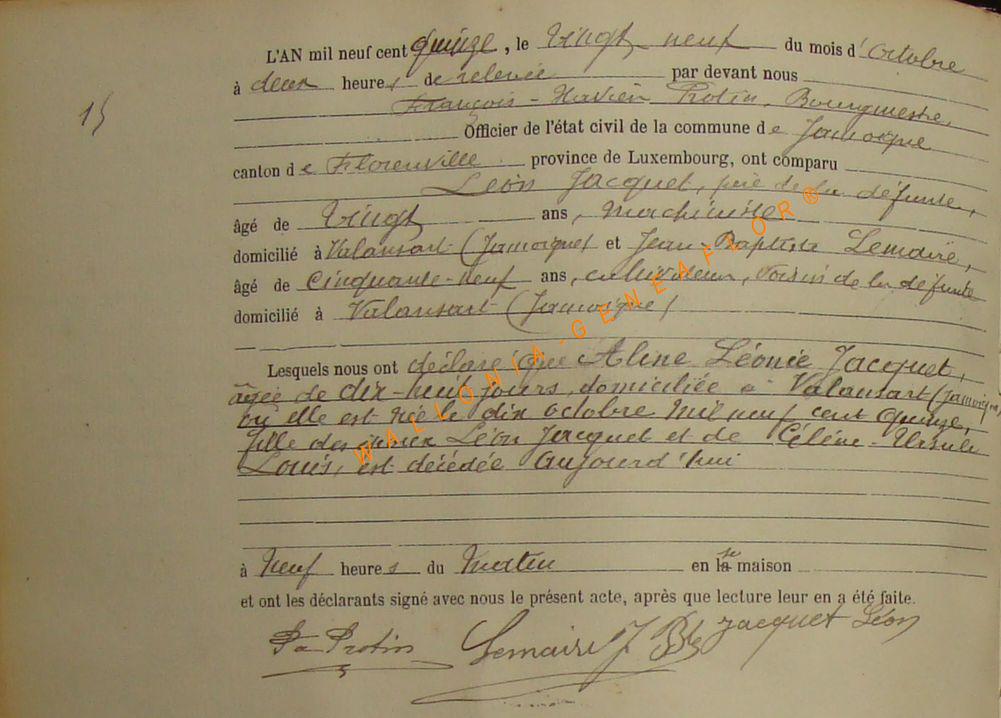 L'AN mil neuf cent quinze, le vingt neuf du mois d'octobre
à deux heures de relevée par devant nous
François-Xavier Protin, Bourgmestre,
15
Officier de l'état civil de la commune de Jamoigne
canton de Florenville province de Luxembourg, ont comparu
Léon Jacquet, père de la défunte,
âgé de vingt ans, machiniste
domicilié à Valansart (Jamoigne) et Jean-Baptiste Lemaire,
âgé de cinquante-neuf ans, cultivateur, voisin de la défunte
domicilié à Valansart (Jamoigne)
Lesquels nous ont déclaré que Aline Léonie Jacquet,
âgée de dix-neuf jours, domiciliée à Valansart (Jamoigne)
où elle est née le dix octobre mil neuf cent quinze,
fille des Léon Jacquet et de Célénie-Ursule
Louis, est décédée aujourd'hui
à neuf heures du matin en sa maison
et ont les déclarants signé avec nous le présent acte, après que lecture leur en a été faite.
Protin Lemaire J Bte Jacquet Léon
WALLONIA-GENEAFLOR®